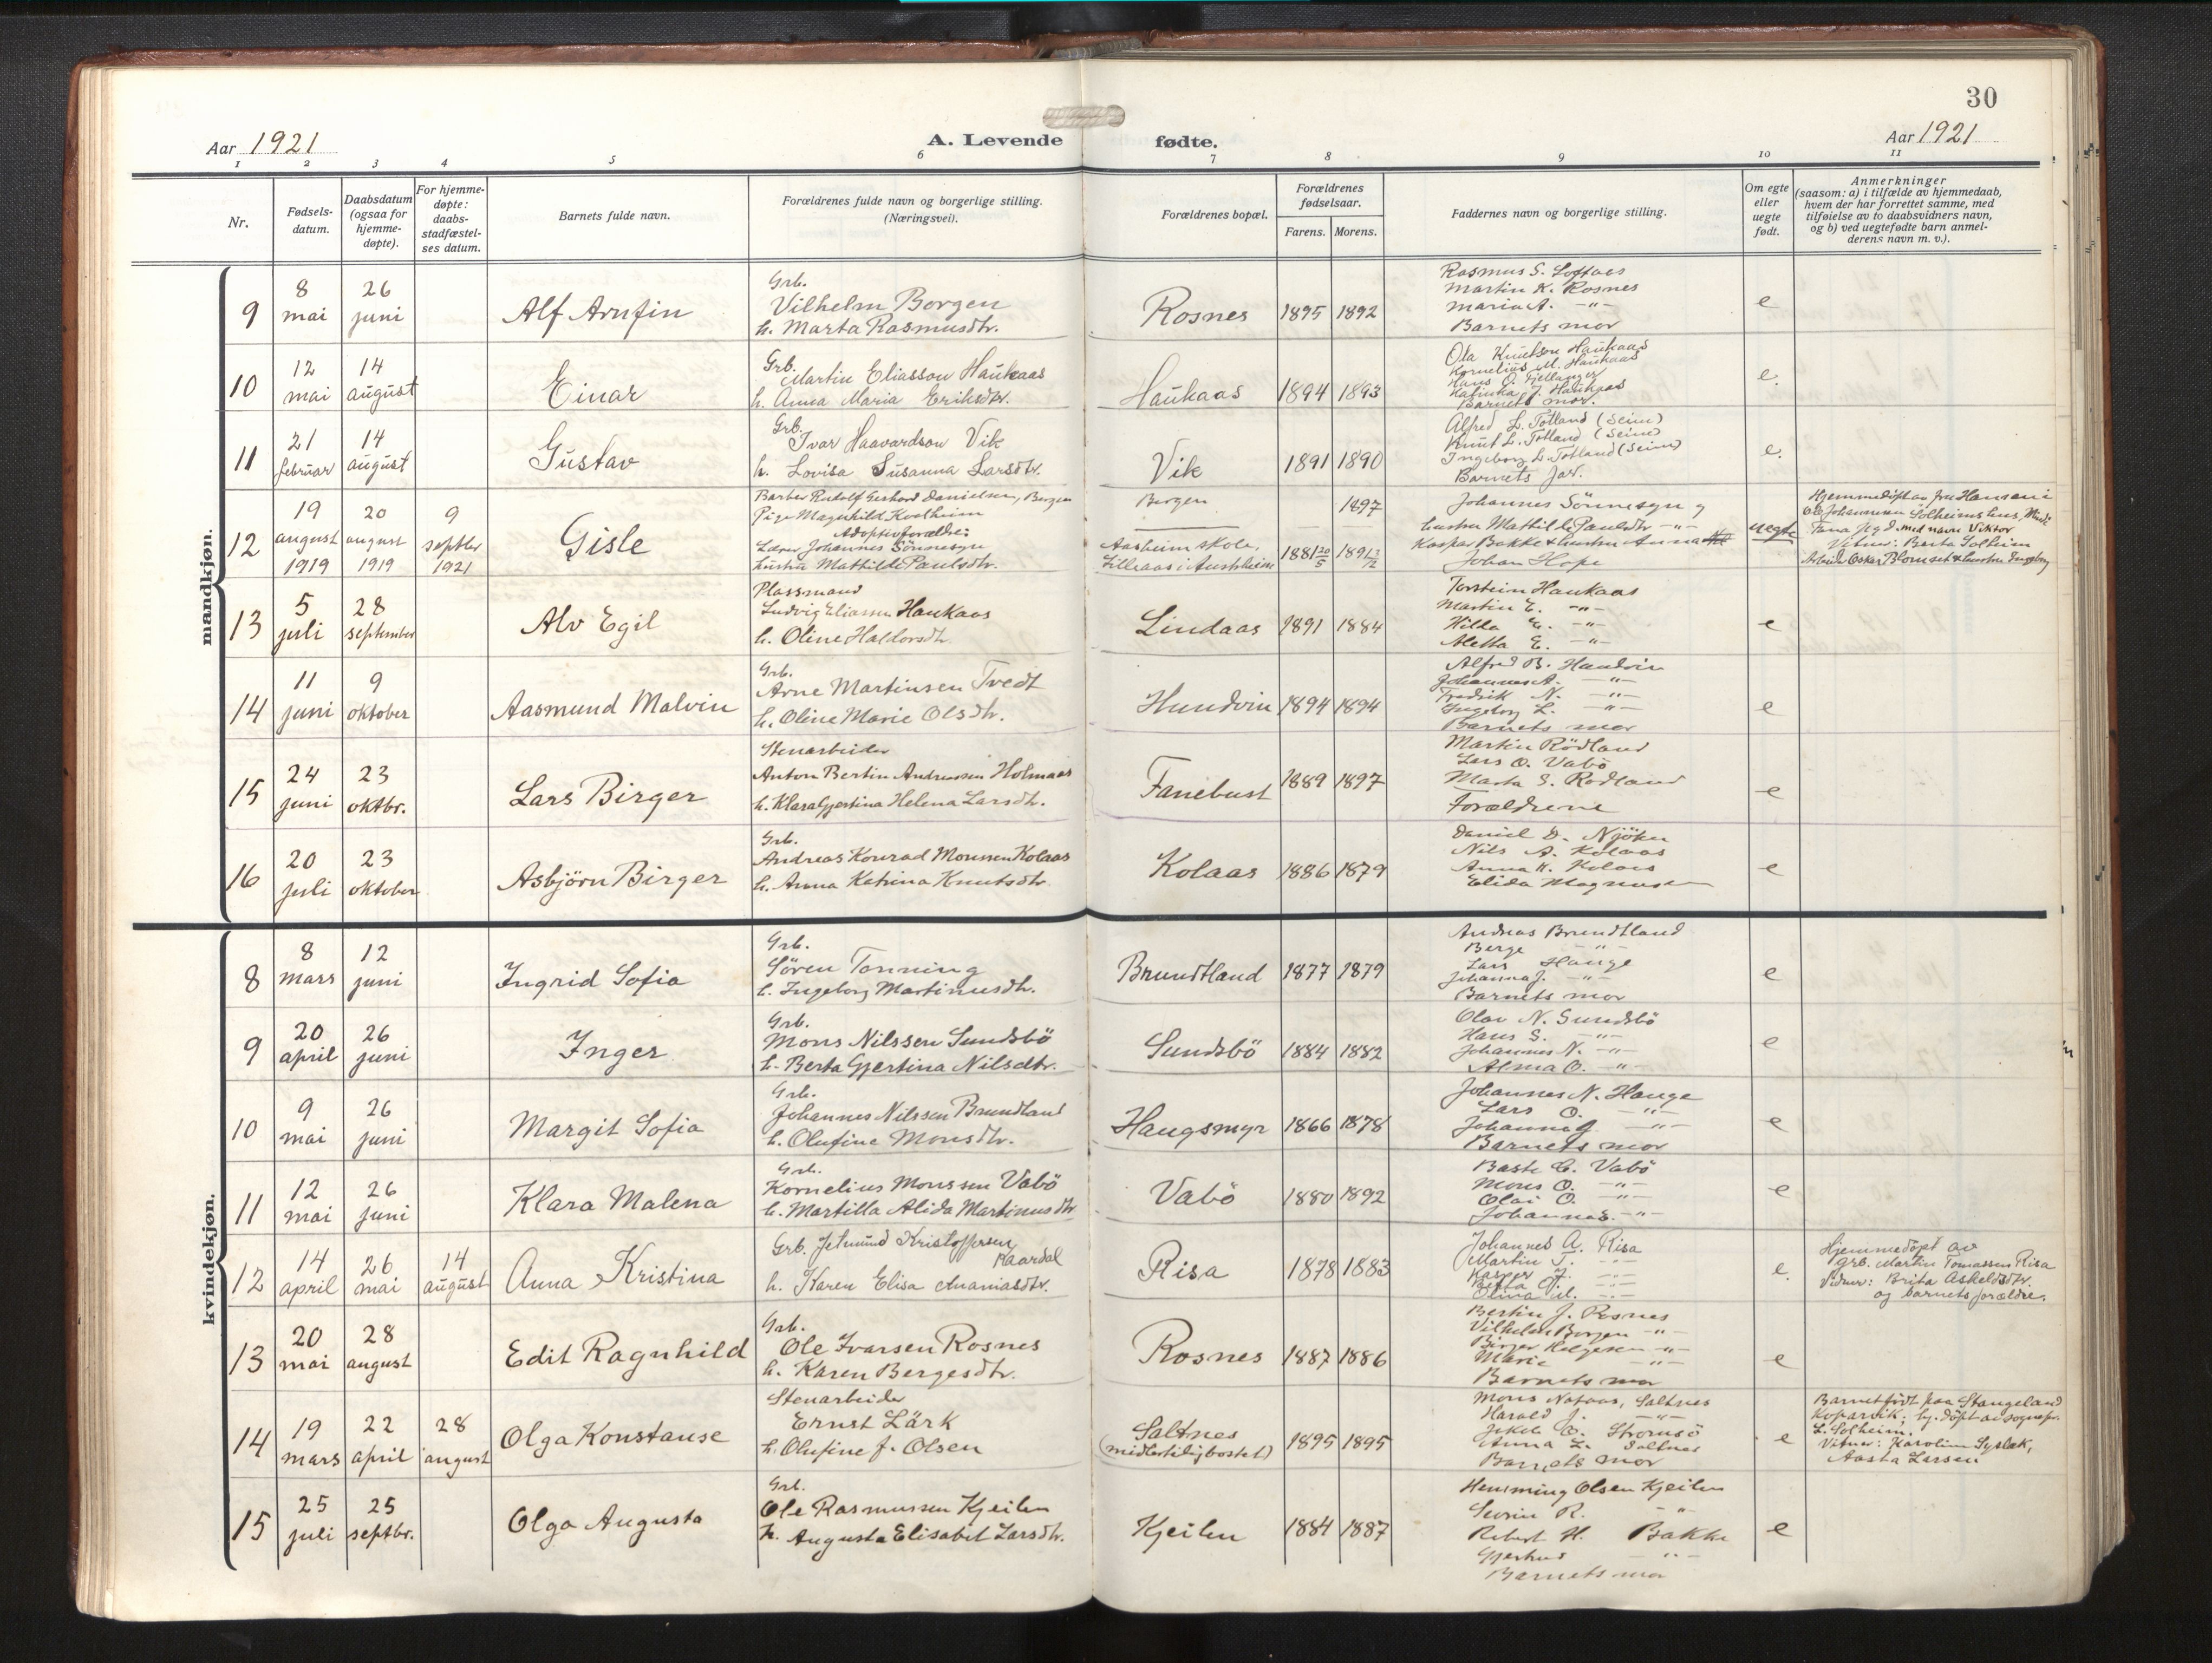 30
Aar 1921
A. Levende fødte.
Aar 1921
1 2 3 4 5 6 7 8 9 10 11
Nr.
Fødsels-
datum.
Daabsdatum
(ogsaa for
hjemme-
døpte).
For hjemme-
døpte:
daabs-
stadfæstel-
ses datum.
Barnets fulde navn.
Forældrenes fulde navn og borgerlige stilling.
(Næringsvei).
Forældrenes bopæl.
Forældrenes
fødselsaar.
Farens. Morens.
Faddernes navn og borgerlige stilling.
Om egte
eller
uegte
født.
Anmerkninger
(saasom: a) i tilfælde av hjemmedaab,
hvem der har forrettet samme, med
tilføielse av to daabsvidners navn,
og b) ved uegtefødte barn anmel-
derens navn m. v.).
mandkjøn.
9
8
mai
26
juni
Alf Arnfin
Grb.
Vilhelm Borgen
h. Marta Rasmusdtr.
Rosnes
1895 1892
Rasmus S. Loftaas
Martin K. Rosnes
Maria A. -"-
Barnets mor
e
10
12
mai
14
august
Einar
Grb.
Martin Eliasson Haukaas
h. Anna Maria Eriksdtr.
Haukaas
1894 1893
Ola Knutson Haukaas
Kornelius M. Haukaas
Hans O. Fjellanger
Kalinka J. Haukaas
Barnets mor.
e.
11
21
februar
14
august
Gustav
Grb.
Ivar Haavardson Vik
h. Lovisa Susanna Larsdtr.
Vik
1891 1890
Alfred L. Totland (Seim)
Knut L. Totland (Seim)
Ingeborg L. Totland (Seim)
Barnets far.
e.
12
19
august
1919
20
august
1919
9
septber
1921
Gisle
Barber Rudolf Gerhard Danielsen, Bergen
Pige Magnhild Kvalheim
Adoptivforældre:
Lærer Johannes Sönnesyn
hustru Mathilde Paulsdtr.
Bergen
Aasheim skole,
Lilleaas i Austrheim
1897
1881 20/5 1891 3/2
Johannes Sönnesyn og
hustru Mathilde Paulsdtr -"-
Kaspar Bakke & hustru Anna
Johan Hope
uegte
Hjemmedöpt av fru Hansen i
Johannesen Solheims hus, Minde
Fana med navn Viktor
Vitner: Berta Solheim
Oskar Blomset & hustru Ingeborg
13
5
juli
28
september
Alv Egil
Plassmand
Ludvig Eliassen Haukaas
h. Oline Haldorsdtr.
Lindaas
1891 1884
Torstein Haukaas
Martin E. -"-
Hilda E. -"-
Aletta E. -"-
e
14
11
juni
9
oktober
Aasmund Malvin
Grb.
Arne Martinsen Tvedt
h. Oline Marie Olsdtr.
Hundvin
1894 1894
Alfred B. Hundvin
Johannes A. -"-
Fredrik N. -"-
Ingeborg L. -"-
Barnets mor
e
15
24
juni
23
oktbr.
Lars Birger
Stenarbeider
Anton Bertin Andreassen Holmaas
h. Klara Gjertina Helena Larsdtr.
Fanebust
1889 1897
Martin Rödland
Lars O. Vabö
Marta S. Rödland
Forældrene
e
16
20
juli
23
oktober
Asbjörn Birger
Grb.
Andreas Konrad Monssen Kolaas
h. Anna Katrina Knutsdtr.
Kolaas
1886 1879
Daniel D. Njöten
Nils A. Kolaas
Anna K. Kolaas
Elida Magnusen
e
kvindekjøn.
8
8
mars
12
juni
Ingrid Sofia
Grb.
Sören Tonning
h. Ingeborg Martinusdtr.
Brundtland
1877 1879
Andreas Brundtland
Berge -"-
Lars Hauge
Johanna J. -"-
Barnets mor
e
9
20
april
26
juni
Inger
Grb.
Mons Nilssen Sundsbö
h. Berta Gjertina Nilsdtr.
Sundsbö
1884 1882
Olav N. Sundsbö
Hans S. -"-
Johannes N. -"-
Alma O. -"-
e
10
9
mai
26
juni
Margit Sofia
Grb.
Johannes Nilssen Brundtland
h. Olufine Monsdtr.
Haugsmyr
1866 1878
Johannes N. Hauge
Lars O. -"-
Johanna J. -"-
Barnets mor
e
11
12
mai
26
juni
Klara Malena
Grb.
Kornelius Monssen Vabö
h. Martilla Alida Martinusdtr
Vabö
1880 1892
Vabö
Mons O. -"-
Olai O. -"-
Johanna -"-
e
12
14
april
26
mai
14
august
Anna Kristina
Grb. Jetmund Kristoffersen
Kaardal
h. Karen Elisa Ananiasdtr.
Risa
1878 1883
Johannes A. Risa
Martin T. -"-
Kasper
Olina M. -"-
e.
Hjemmedöpt av
grb. Martin Tomassen Risa
Vidner: Brita Askeldsdtr.
og barnets forældre.
13
20
mai
28
august
Edit Ragnhild
Grb.
Ole Ivarsen Rosnes
h. Karen Bergesdtr.
Rosnes
1887 1886
Bertin J. Rosnes
Vilhelm Borgen -"-
Birger Helgesen -"-
Marie -"-
Barnets mor
e
14
19
mars
22
april
28
august
Olga Konstanse
Stenarbeider
Ernst Lärk
h. Olufine J. Olsen
Saltnes
(midlertidig bostet)
1895 1895
Mons Notaas, Saltnes
Harald J. -"-
Jakob O. Stromsö
Anna L. Saltnes
Barnets mor
e
Barnet födt paa Stangeland
Kopervik; hj. döpt av sognepr.
L. Solheim.
Vitner: Karoline Syslak,
Aasta Larsen
15
25
juli
25
septbr.
Olga Augusta
Grb.
Ole Rasmussen Kjeilen
h. Augusta Elisabet Larsdtr.
Kjeilen
1884 1887
Hemming Olsen Kjeilen
Severin R. -"-
Robert H. Bakke
Gjertrud -"-
Barnets mor
e